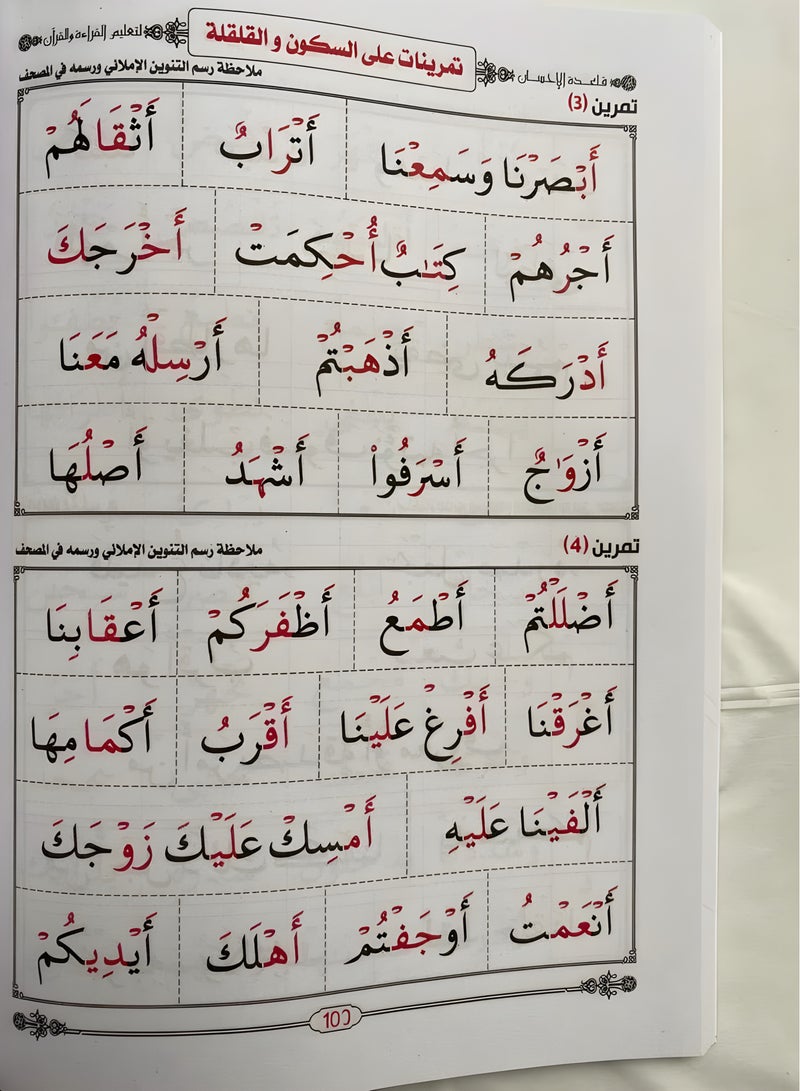 قاعدة الإحسان
تمرينات على السكون و القلقلة
لتعليم القراءة والقرآن
تمرين (3)
ملاحظة رسم التنوين الإملائي ورسمه في المصحف
أَبْصَرْنَا وَسَمِعْنَا أَتْرَابٌ أَثْقَالَهُمْ
أَجْرُهُمْ كِتَٰبٌ أُحْكِمَتْ أَخْرَجَكَ
أَدْرَكَهُ أَذْهَبْتُمْ أَرْسِلْهُ مَعَنَا
أَزْوَٰجٌ أَسْرَفُوا۟ أَشْهَدُ أَصْلُهَا
تمرين (4)
ملاحظة رسم التنوين الإملائي ورسمه في المصحف
أَضْلَلْتُمْ أَطْمَعُ أَظْفَرَكُمْ أَعْقَابِنَا
أَغْرَقْنَا أَفْرِغْ عَلَيْنَا أَقْرَبُ أَكْمَامِهَا
أَلْفَيْنَا عَلَيْهِ أَمْسِكْ عَلَيْكَ زَوْجَكَ
أَنْعَمْتُ أَوْجَفْتُمْ أَهْلَكَ أَيْدِيكُمْ
100